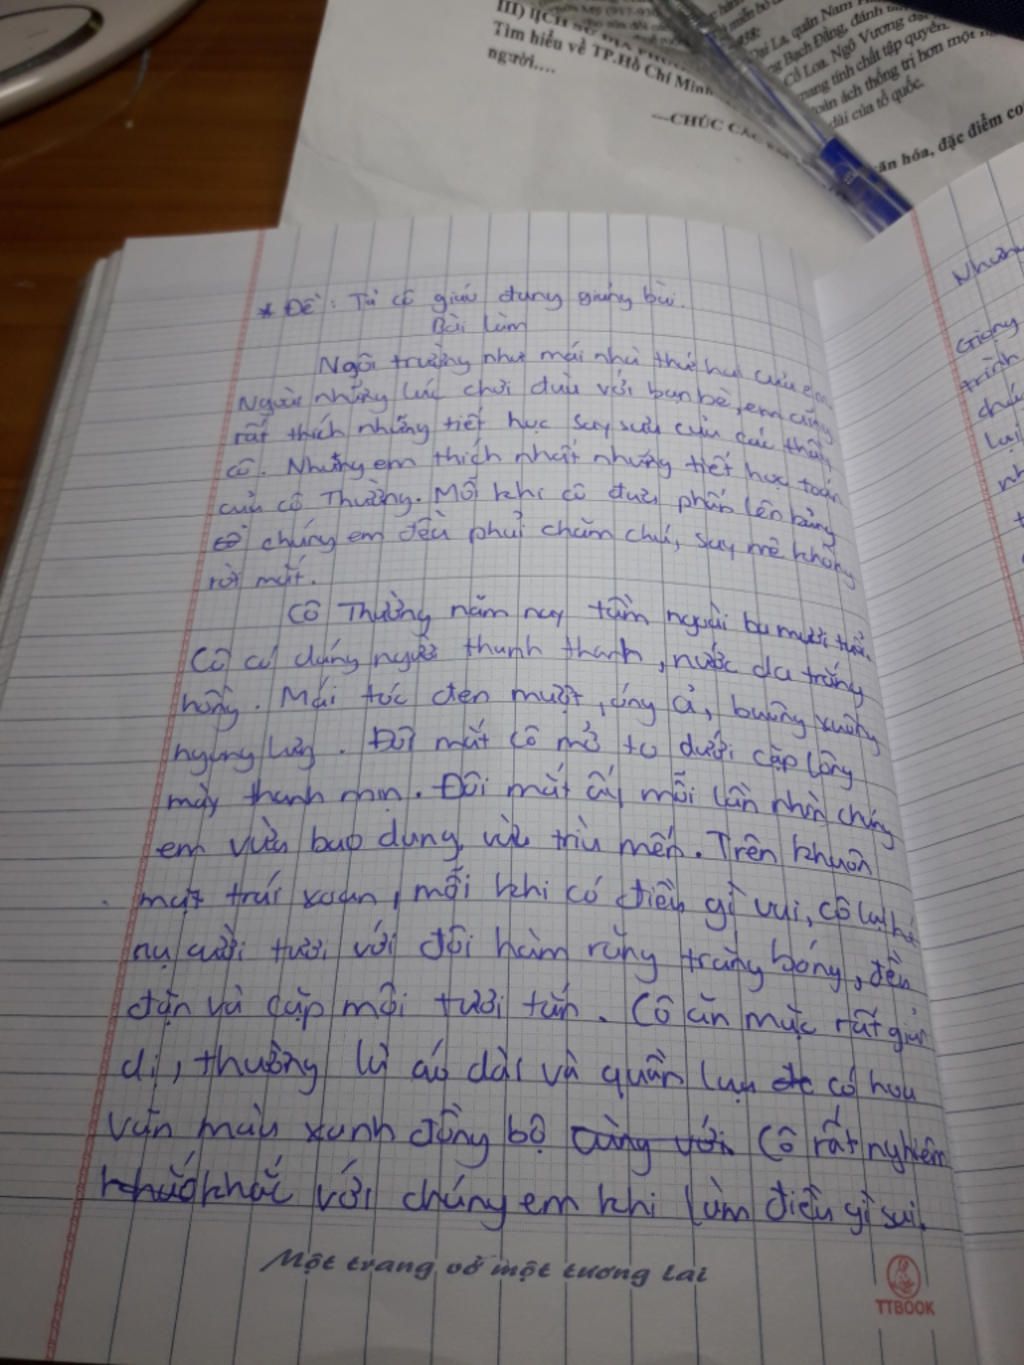 III) LỊCH SỬ ĐỊA PHƯƠNG
Tìm hiểu về TP.Hồ Chí Minh
người....
---CHÚC CÁC
Đại La, quận Nam
Bạch Đằng, đánh
Cổ Loa. Ngô Vương
mang tính chất tập quyền.
ách thống trị hơn một
dài của tổ quốc.
văn hóa, đặc điểm
* Đề: Tả cô giáo đang giảng bài.
Bài làm
Ngôi trường như mái nhà thứ hai của em.
Ngoài những lúc chơi đùa với bạn bè, em cũng
rất thích những tiết học say sưa của các thầy
cô. Nhưng em thích nhất những tiết học toán
của cô Thường. Mỗi khi cô đưa phấn lên bảng
cô chúng em đều phải chăm chú, say mê không
rời mắt.
Cô Thường năm nay tầm ngoài ba mươi tuổi.
Cô có dáng người thanh thanh, nước da trắng
hồng. Mái tóc đen mượt, óng ả, buông xuống
ngang lưng. Đôi mắt cô mở to dưới cặp lông
mày thanh mịn. Đôi mắt ấy mỗi lần nhìn chúng
em vừa bao dung, vừa trìu mến. Trên khuôn
mặt trái xoan, mỗi khi có điều gì vui, cô lại hé
nụ cười tươi với đôi hàm răng trắng bóng, đều
đặn và cặp môi tươi tắn. Cô ăn mặc rất giản
dị, thường là áo dài và quần lụa có hoa
văn màu xanh đồng bộ cùng với. Cô rất nghiêm
khắc với chúng em khi làm điều gì sai.
Một trang vở một tương lai
TTBOOK
Nhưng
Giọng
trình
chú
lại
nh